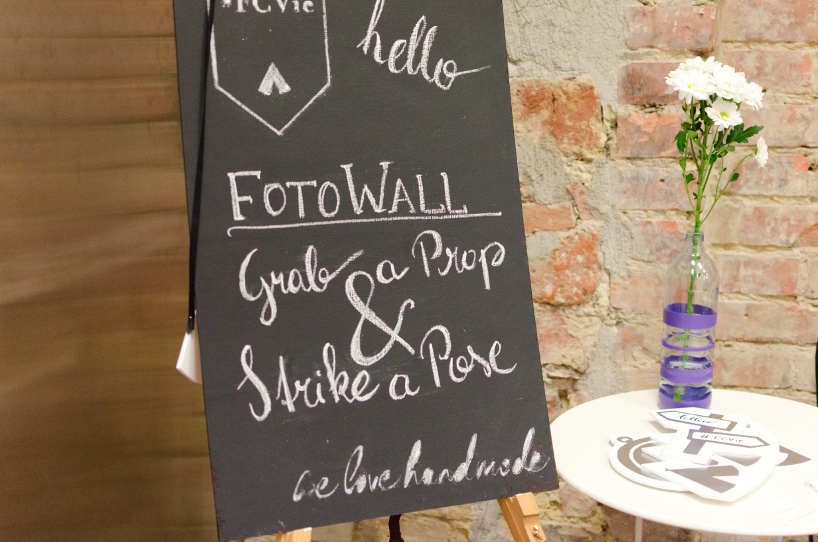 #FCVie
hello
FOTOWALL
Grab a Prop
&
Strike a Pose
we love handmade
#FCVie